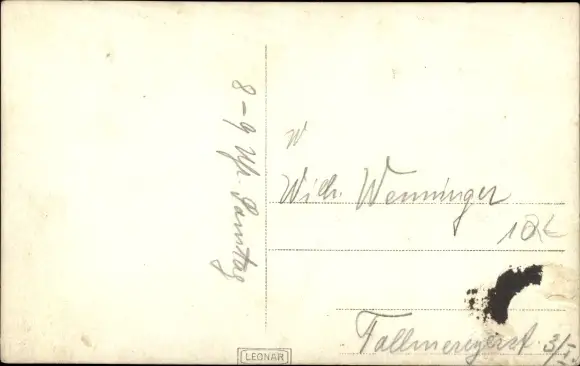 8-9 Uhr. Samstag
W
Wilh. Wenninger
10€
Fallmereyerst. 3/I.
LEONAR